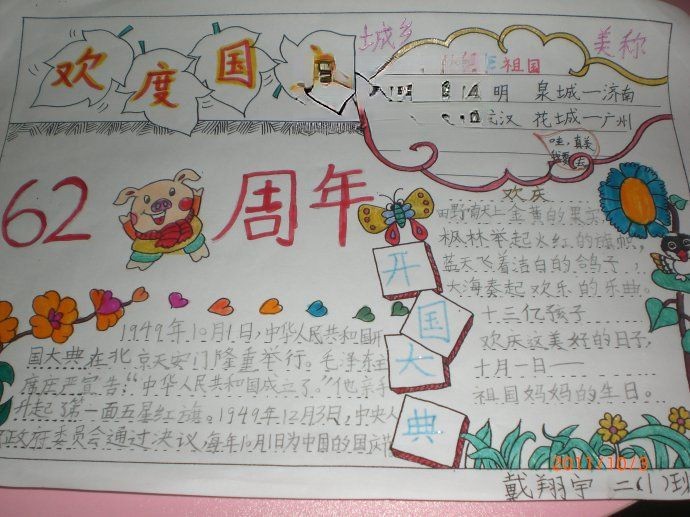 欢度国
土城乡
美称
祖国
明 泉城一济南
汉 花城一广州
哇，真美
我要去
62 周年
欢庆
田野献上金黄的果实
枫林举起火红的旗帜，
蓝天飞着洁白的鸽子，
大海奏起欢乐的乐曲。
十三亿孩子
欢庆这美好的日子，
十月一日——
祖国妈妈的生日。
开国大典
1949年10月1日，中华人民共和国开
国大典在北京天安门隆重举行。毛泽东主
席庄严宣告：“中华人民共和国成立了。”他亲手
升起了第一面五星红旗。1949年12月3日，中央人
政府委员会通过决议，每年10月1日为中国的国庆
2011/10/3
戴翔宇 二（1）班